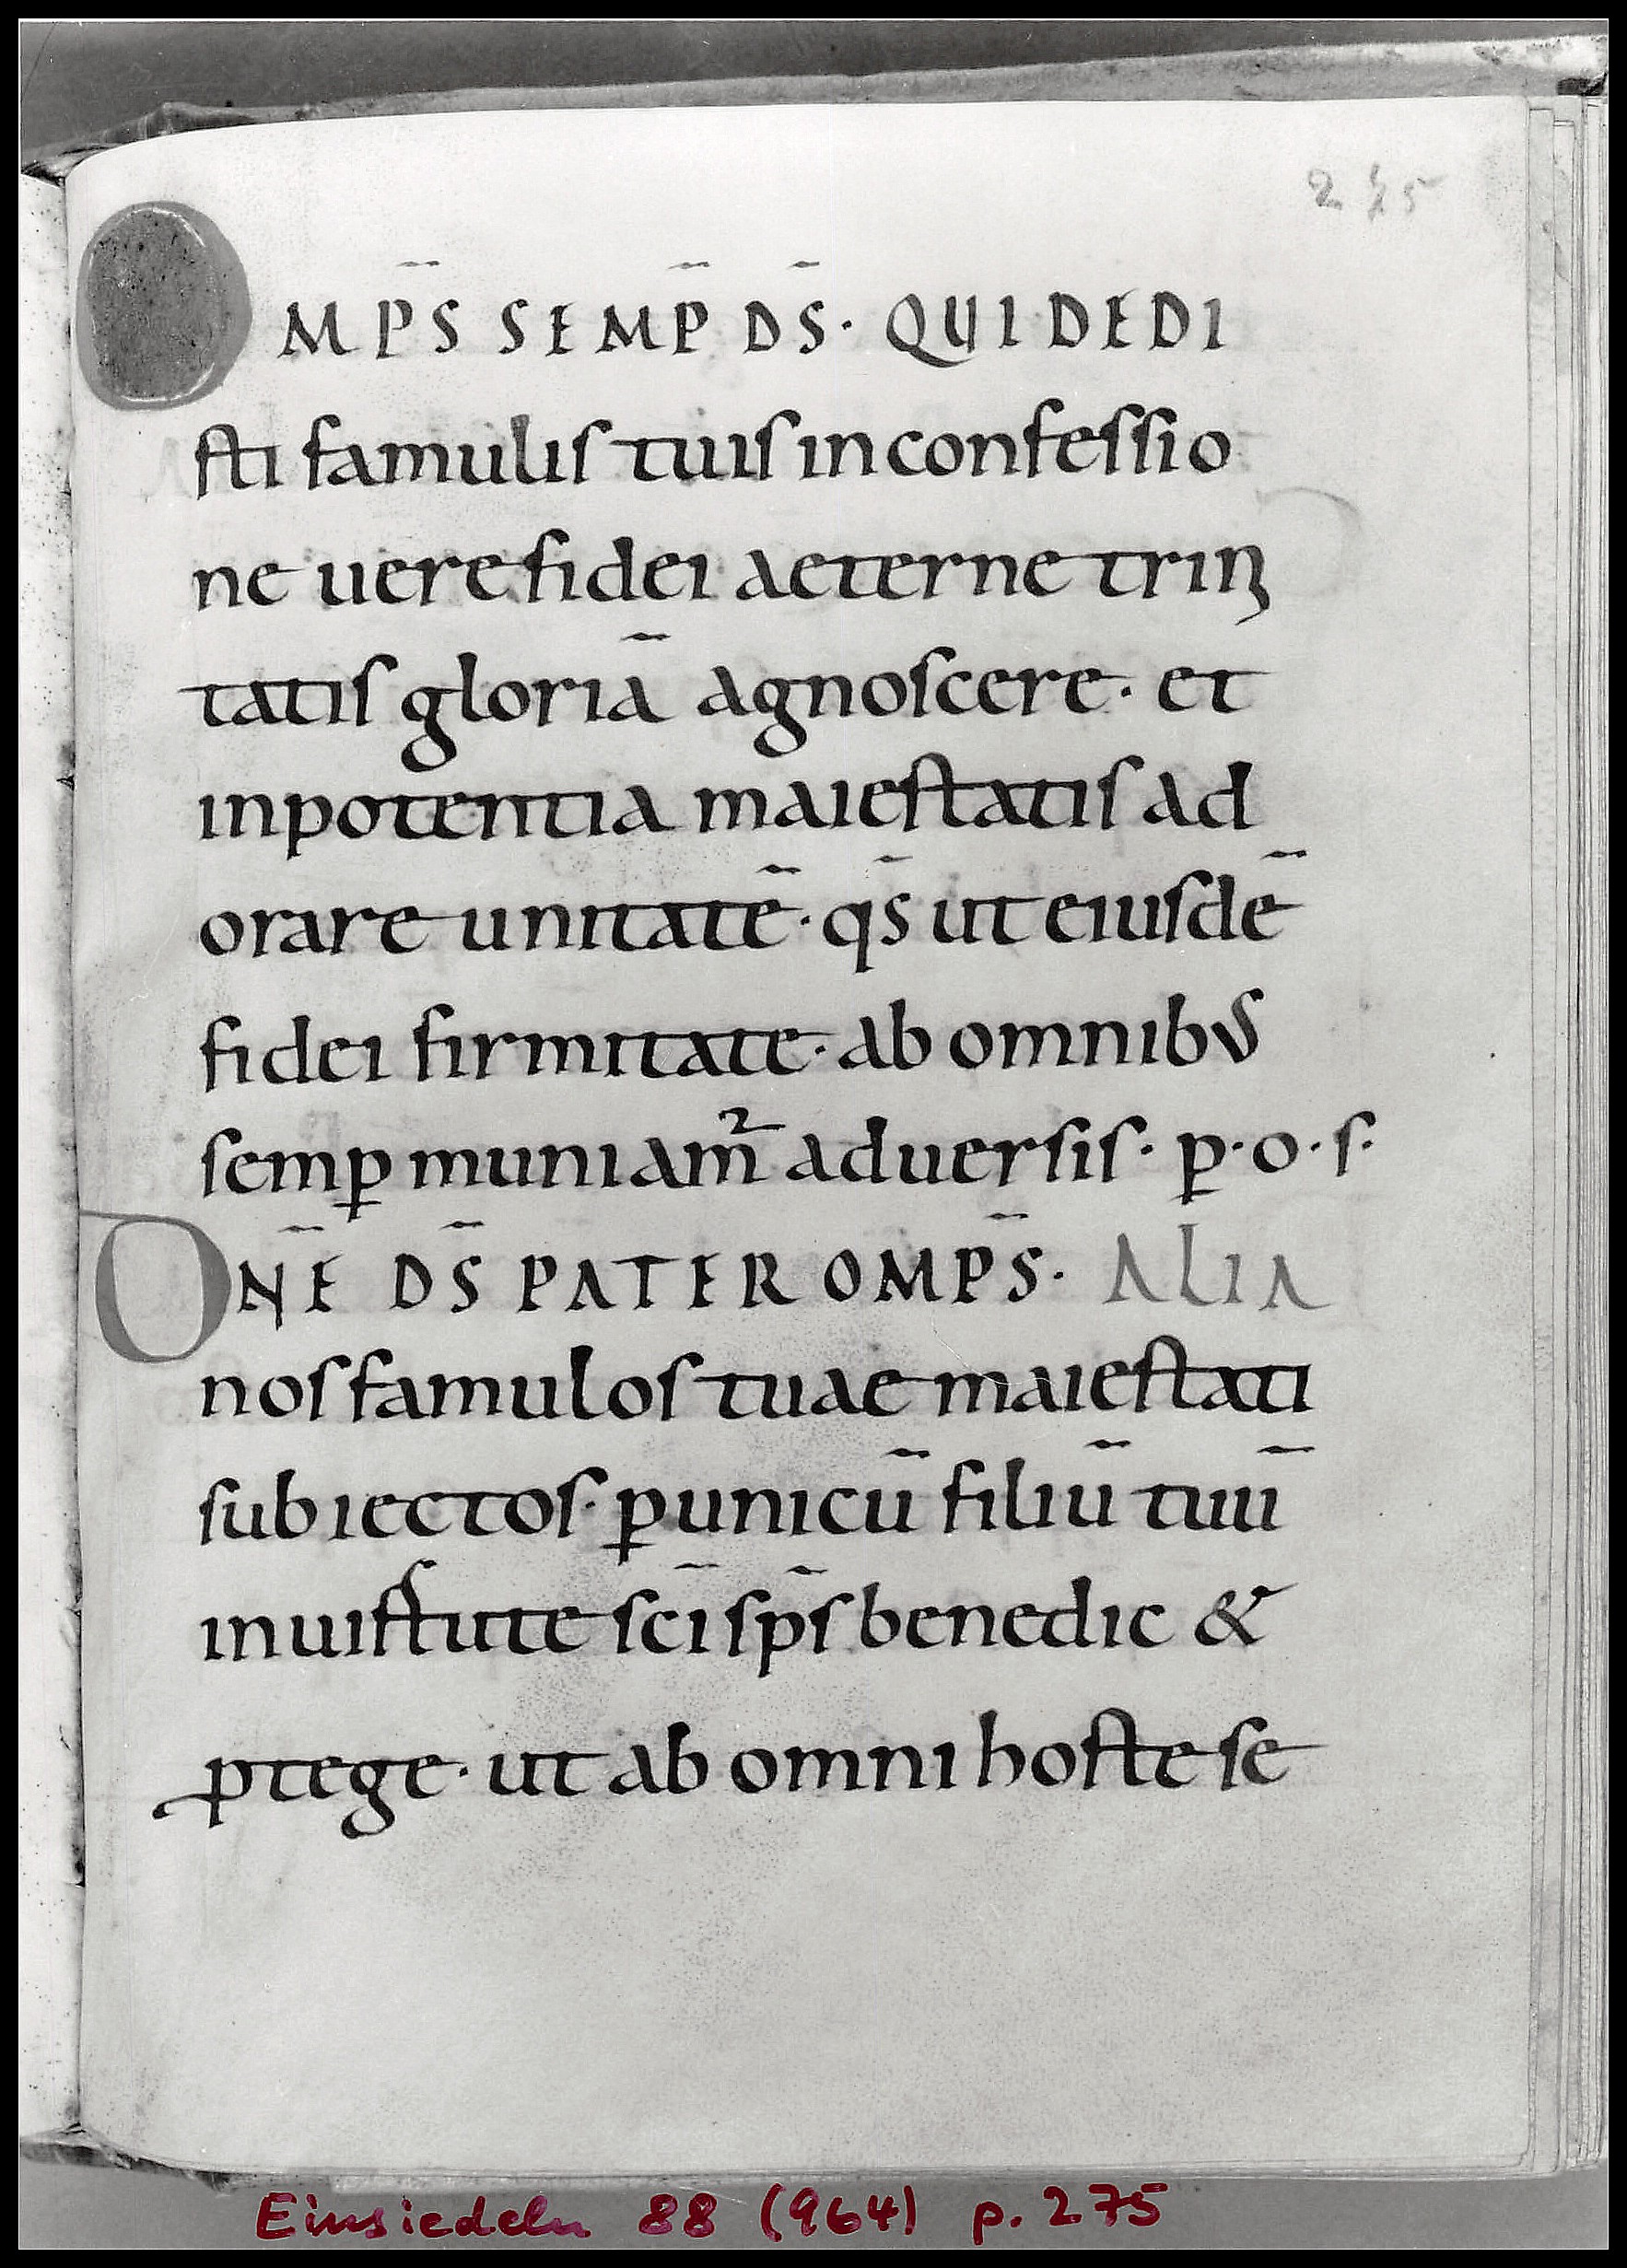 275
OMP̄S SEMP̄ DS̄· QUI DEDI
sti famulis tuis in confessio
ne uere fidei aeterne trini
tatis gloriā agnoscere· et
in potentia maiestatis ad
orare unitatē· qs̄ ut eiusdē
fidei firmitate· ab omnibus
semꝑ muniam̄² aduersis· ꝑ·o·s·
DN̄E DS̄ PATER OMP̄S· ALIA
nos famulos tuae maiestati
subiectos· ꝑ unicū filiū tuū
in uistute sc̄i sp̄s benedic &
ꝓtege· ut ab omni hoste se
Einsiedeln 88 (964) p. 275